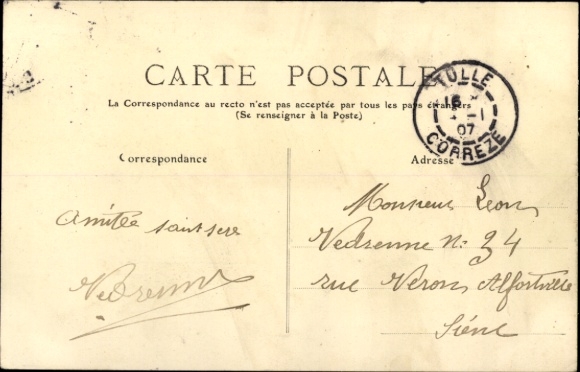 CARTE POSTALE
La Correspondance au recto n'est pas acceptée par tous les pays étrangers
(Se renseigner à la Poste)
TULLE
16
-1
07
CORREZE
Correspondance
Adresse
Amitée saintsere
Vedrenne
Monsieur Leon
Vedrenne N: 34
rue Veron Alfortville
Siène